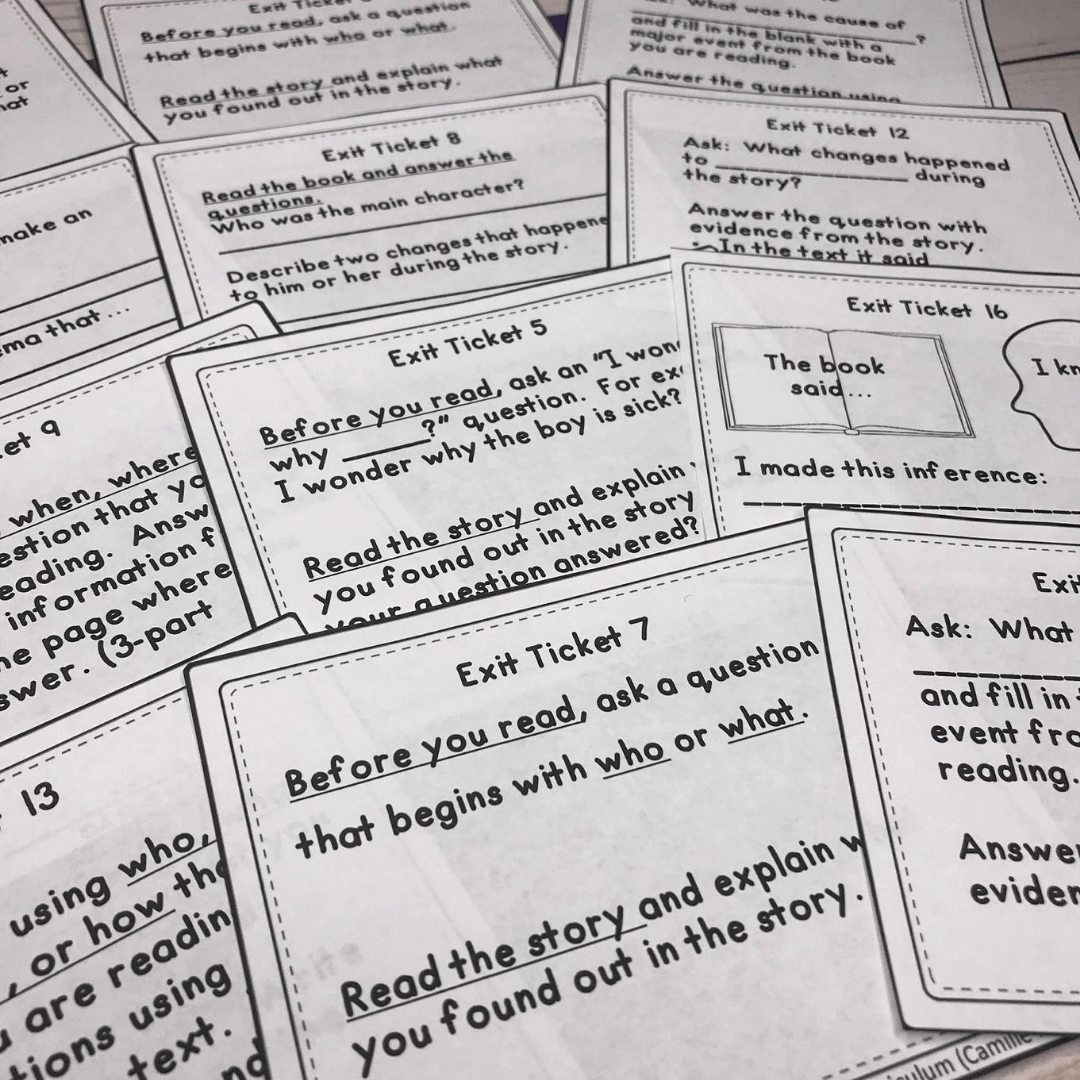 Exit Ticket
Before you read, ask a question
that begins with who or what.
Read the story and explain what
you found out in the story.
What was the cause of
?
and fill in the blank with a
major event from the book
you are reading.
Answer the question using
or
hat
Exit Ticket 8
Read the book and answer the
questions.
Who was the main character?
Describe two changes that happene
to him or her during the story.
Exit Ticket 12
Ask: What changes happened
to ____________ during
the story?
Answer the question with
evidence from the story.
In the text it said
make an
ma that ...
Exit Ticket 5
Before you read, ask an "I won
why ______?" question. For ex
I wonder why the boy is sick?
Read the story and explain
you found out in the story
your question answered?
Exit Ticket 16
The book
said...
I kn
I made this inference:
et 9
when, where
estion that yo
eading. Answ
information f
he page where
swer. (3-part
Exit Ticket 7
Before you read, ask a question
that begins with who or what.
Read the story and explain w
you found out in the story.
Exi
Ask: What
and fill in
event fro
reading.
Answe
eviden
13
using who,
, or how the
u are readin
tions using
text.
nd
ulum (Camille